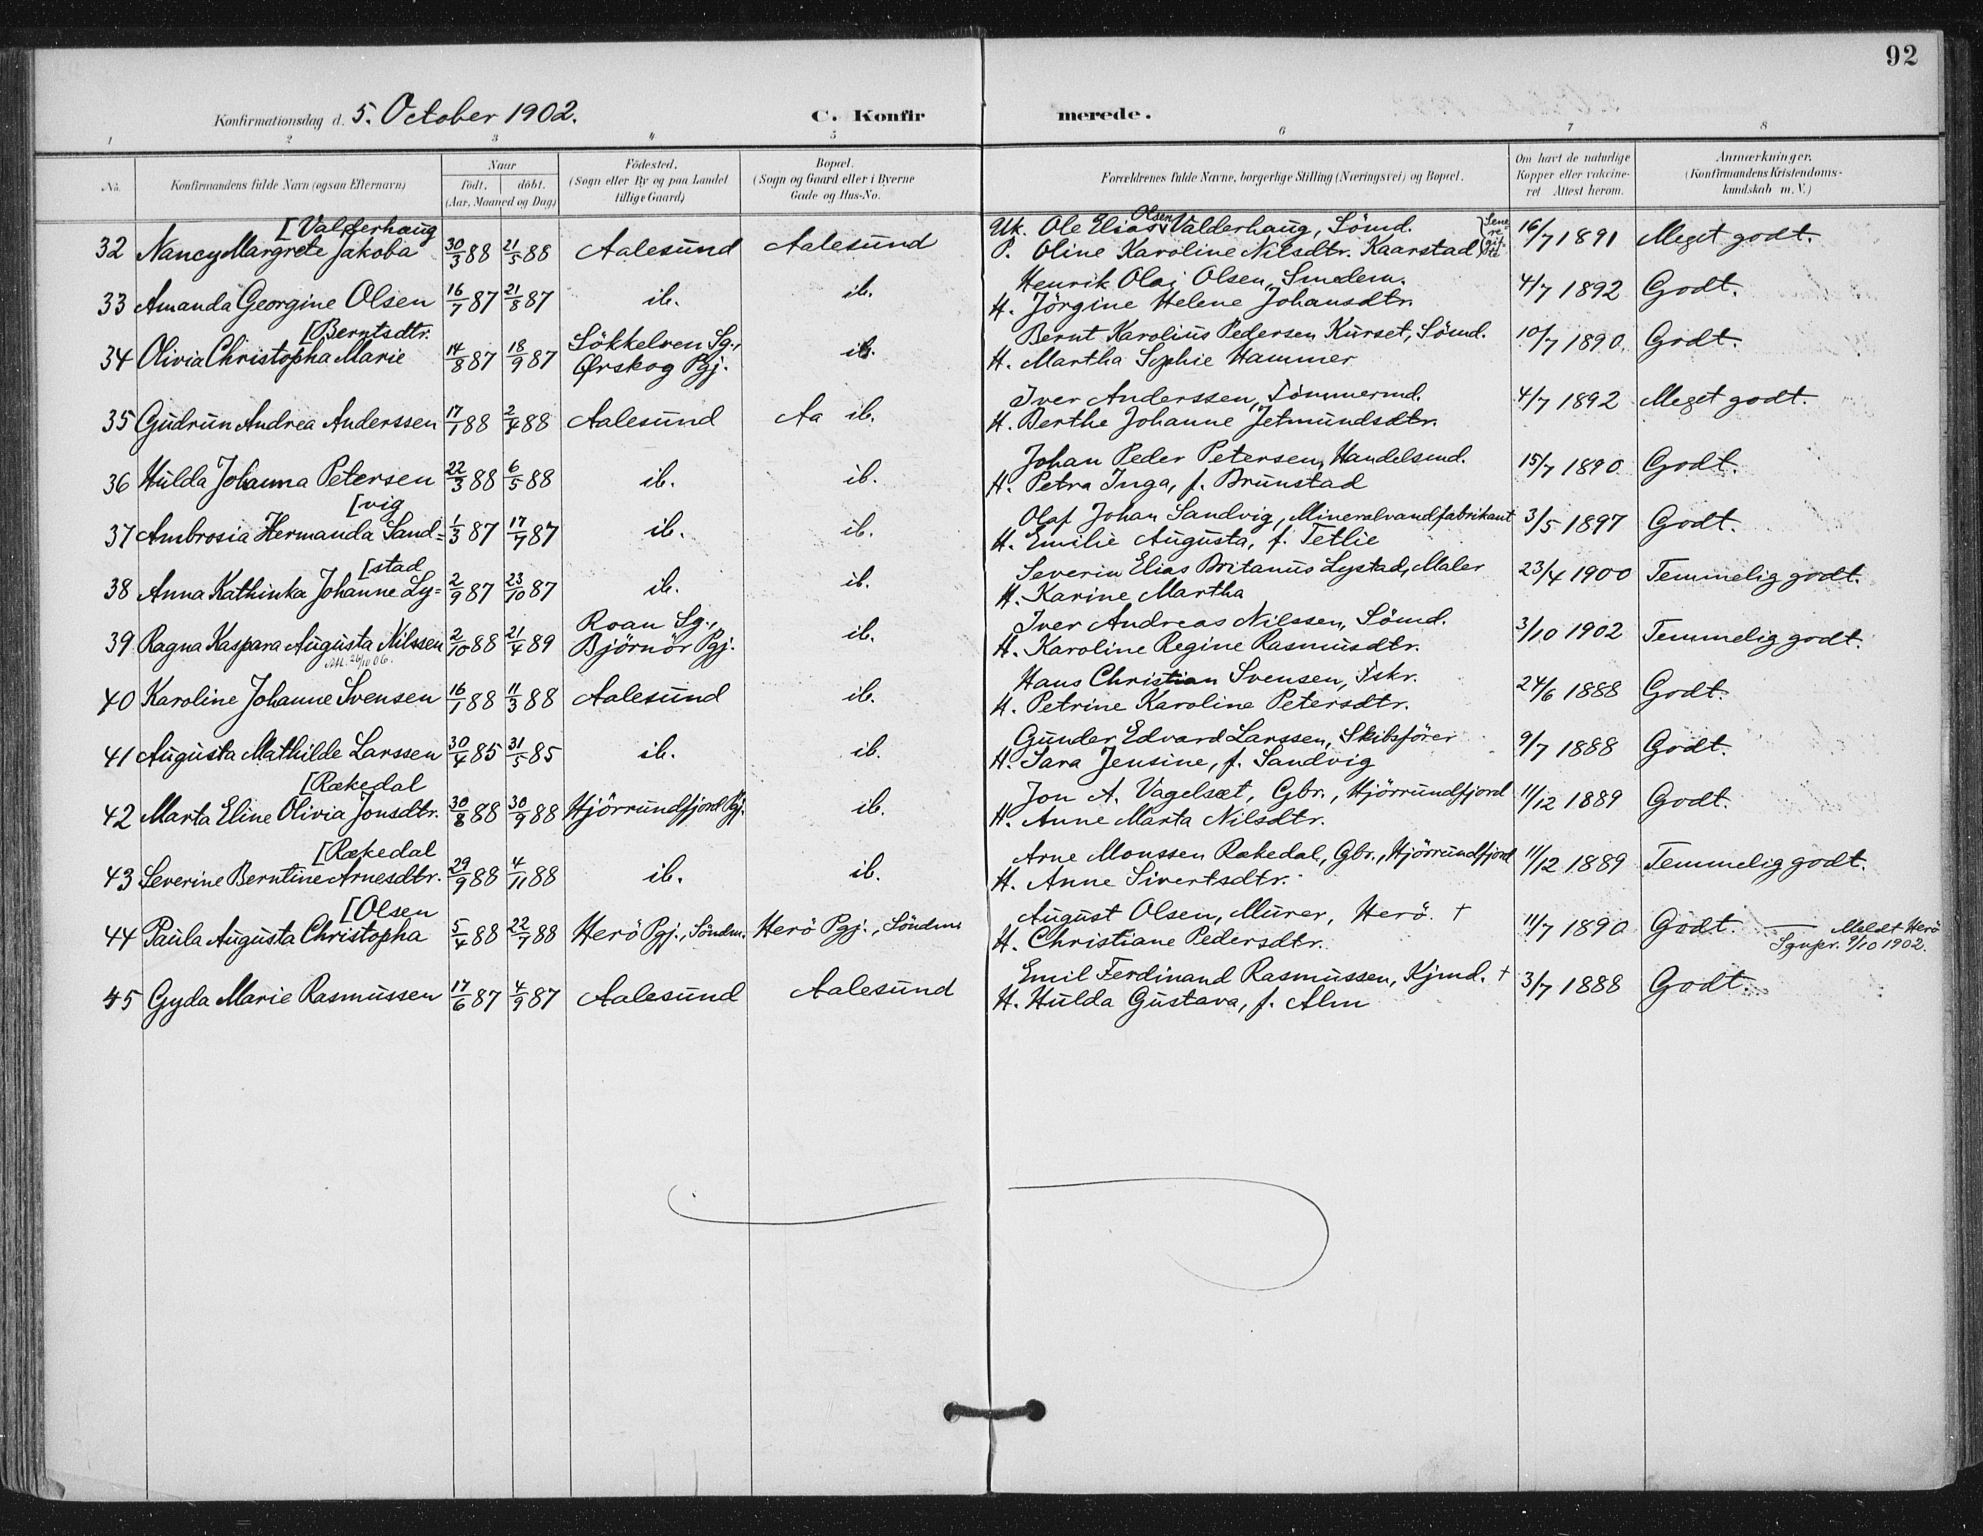 92
Konfirmationsdag d. 5. October 1902. C. Konfirmerede.
1 2 3 4 5 6 7 8
No. Konfirmandens fulde Navn (ogsaa Efternavn) Naar født. døbt. (Aar, Maaned og Dag) Fødested. (Sogn eller By og paa Landet tillige Gaard) Bopæl. (Sogn og Gaard eller i Byerne Gade og Hus-No. Forældrenes fulde Navne, borgerlige Stilling (Næringsvei) og Bopæl. Om havt de naturlige Kopper eller vakcineret Attest herom. Anmærkninger. (Konfirmandens Kristendomskundskab m. V.)
[Valderhaug Uk. Ole Elias Olsen Valderhaug, Sömd. {Senere gifte
32 Nancy Margrete Jakoba 30/3 88 21/5 88 Aalesund Aalesund P. Oline Karoline Nilsdtr. Kaarstad 16/7 1891 Meget godt.
Henrik Olai Olsen, Smedem.
33 Amanda Georgine Olsen 16/7 87 21/8 87 ib. ib. H. Jörgine Helene Johansdtr. 4/7 1892 Godt.
[Berntsdtr. Sökkelven Sg., Bernt Karolius Pedersen Kurset, Sömd.
34 Olivia Christopha Marie 14/8 87 18/9 87 Ørskog Pgj. ib. H. Martha Sophie Hammer 10/7 1890. Godt.
Iver Anderssen, Tömmermd.
35 Gudrun Andrea Anderssen 17/1 88 2/4 88 Aalesund Aa ib. H. Berthe Johanne Jetmundsdtr. 4/7 1892 Meget godt.
Johan Peder Petersen, Handelsmd.
36 Hulda Johanna Petersen 22/3 88 6/5 88 ib. ib. H. Petra Inga, f. Brunstad 15/7 1890 Godt.
[vig Olaf Johan Sandvig, Mineralvandfabrikant
37 Ambrosia Hermanda Sand= 1/3 87 17/7 87 ib. ib. H. Emilie Augusta, f. Tetlie 3/5 1897 Godt.
[stad Severin Elias Britanus Lystad, Maler
38 Anna Kathinka Johanne Ly= 2/9 87 23/10 87 ib. ib. H. Karine Martha 23/4 1900 Temmelig godt.
Roan Sg., Iver Andreas Nilssen, Sömd.
39 Ragna Kaspara Augusta Nilssen 2/10 88 21/4 89 Björnör Pgj. ib. H. Karoline Regine Rasmusdtr. 3/10 1902 Temmelig godt.
Att. 26/10 06.
Hans Christian Svensen, Fskr.
40 Karoline Johanne Svensen 16/1 88 11/3 88 Aalesund ib. H. Petrine Karoline Petersdtr. 24/6 1888 Godt.
Gunder Edvard Larssen, Skibsförer
41 Augusta Mathilde Larssen 30/4 85 31/5 85 ib. ib. H. Sara Jensine, f. Sandvig 9/7 1888 Godt.
[Rækedal Jon A. Vagelsæt, Gbr., Hjörrundfjord
42 Marta Eline Olivia Jonsdtr. 30/8 88 30/9 88 Hjörrundfjord Pgj. ib. H. Anne Marta Nilsdtr. 11/12 1889 Godt.
[Rækedal Arne Monssen Rækedal, Gbr., Hjörrundfjord
43 Severine Berntine Arnesdtr. 29/9 88 4/11 88 ib. ib. H. Anne Sivertsdtr. 11/12 1889 Temmelig godt.
[Olsen August Olsen, Murer, Herö. †
44 Paula Augusta Christopha 5/4 88 22/7 88 Herö Pgj., Söndm. Herö Pgj., Söndm. H. Christiane Pedersdtr. 11/7 1890 Godt. — Meldt Herö Sgnpr. 9/10 1902.
Emil Ferdinand Rasmussen, Kjmd. †
45 Gyda Marie Rasmussen 17/6 87 4/9 87 Aalesund Aalesund H. Hulda Gustava, f. Alm 3/7 1888 Godt.